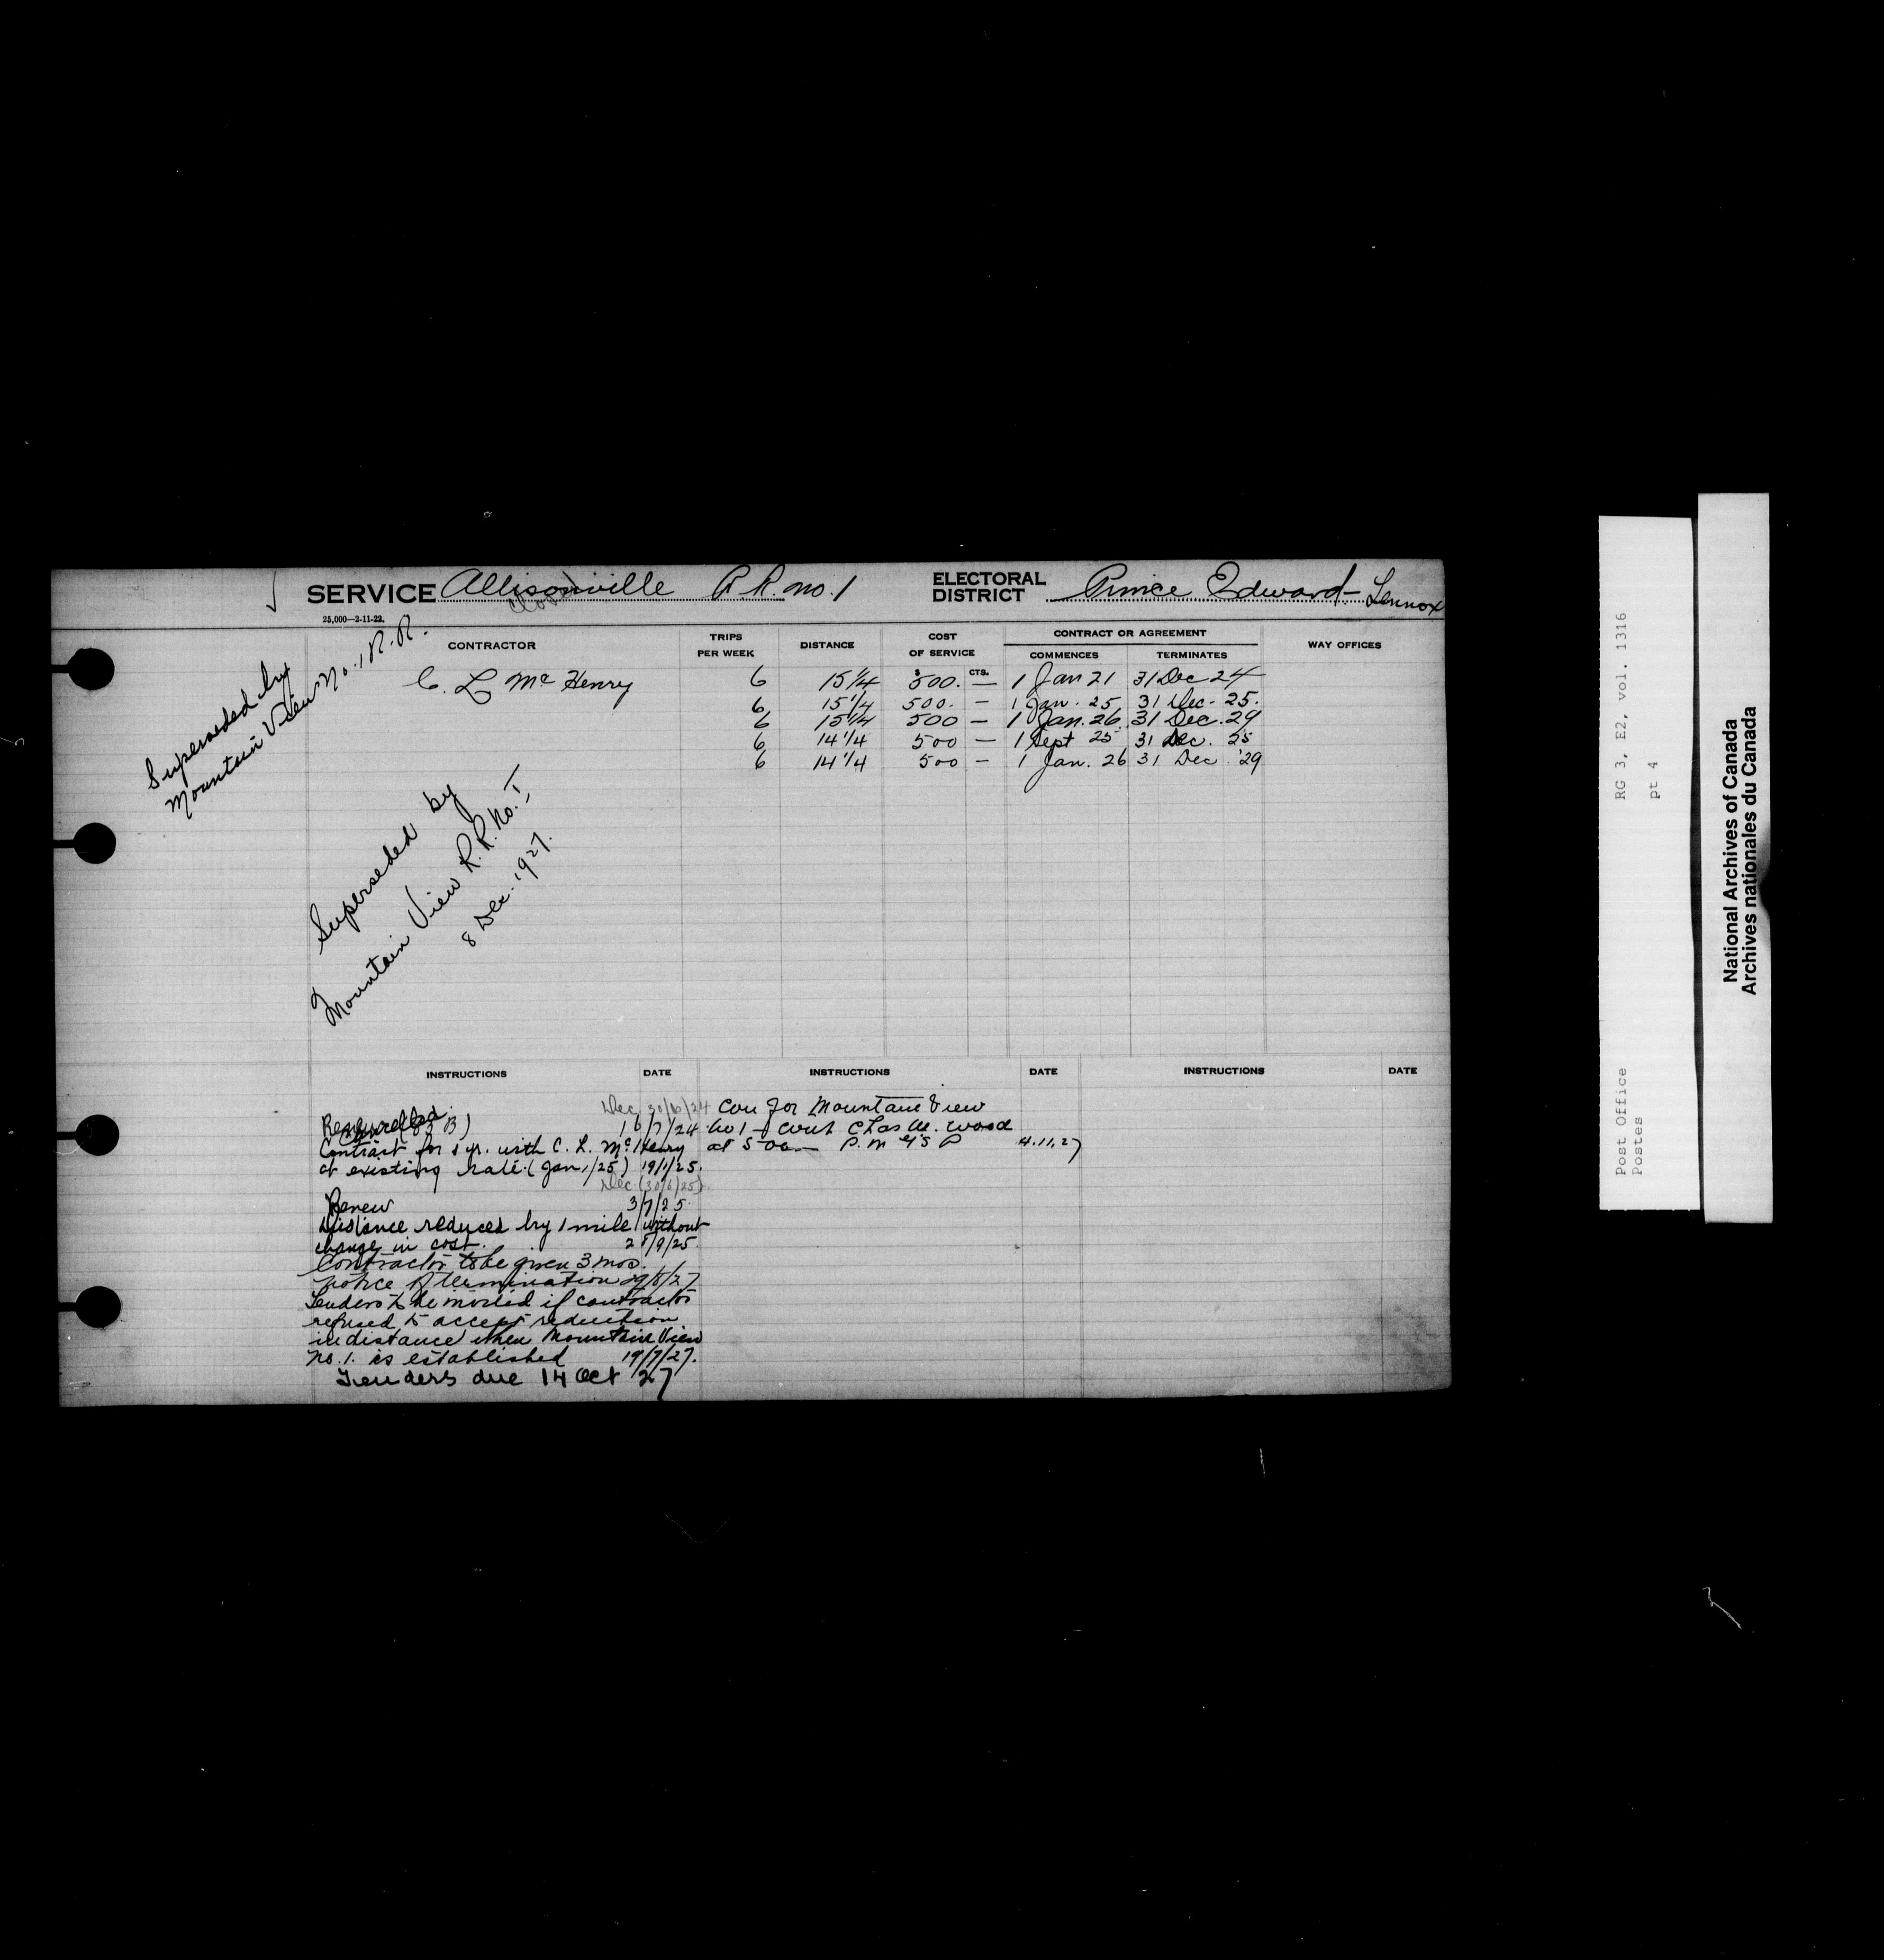 SERVICE Allisonville R.R. no. 1
ELECTORAL DISTRICT Prince Edward-Lennox
25,000—2-11-22.
CONTRACTOR TRIPS PER WEEK DISTANCE COST OF SERVICE CONTRACT OR AGREEMENT WAY OFFICES
$ CTS. COMMENCES TERMINATES
C. L. McHenry 6 15 1/4 500. — 1 Jan 21 31 Dec 24
6 15 1/4 500. — 1 Jan. 25 31 Dec. 25.
6 15 1/4 500 — 1 Jan. 26 31 Dec. 29
6 14 1/4 500 — 1 Sept 25 31 Dec. 25
6 14 1/4 500 — 1 Jan. 26 31 Dec. '29
Superseded by
Mountain View No. 1 R.R.
Superseded by
Mountain View R.R. No. 1,
8 Dec. 1927.
INSTRUCTIONS DATE INSTRUCTIONS DATE INSTRUCTIONS DATE
Dec 30/6/24
16/7/24
Contract for 1 yr. with C. L. McHenry
at existing rate (Jan 1/25) 19/1/25.
Dec (30/6/25)
Renew 3/7/25.
Distance reduced by 1 mile without
change in cost. 28/9/25.
Contractor to be given 3 mos.
notice of termination 29/8/27
Tenders to be invited if contractor
refused to accept reduction
in distance when Mountain View
No. 1. is established 19/7/27.
Tenders due 14 Oct 27
Con for Mountain View
No 1 cont Chas W. Wood
at 500— P.M G's P 4.11.27
Post Office RG 3, E2, vol. 1316
Postes pt 4
National Archives of Canada
Archives nationales du Canada